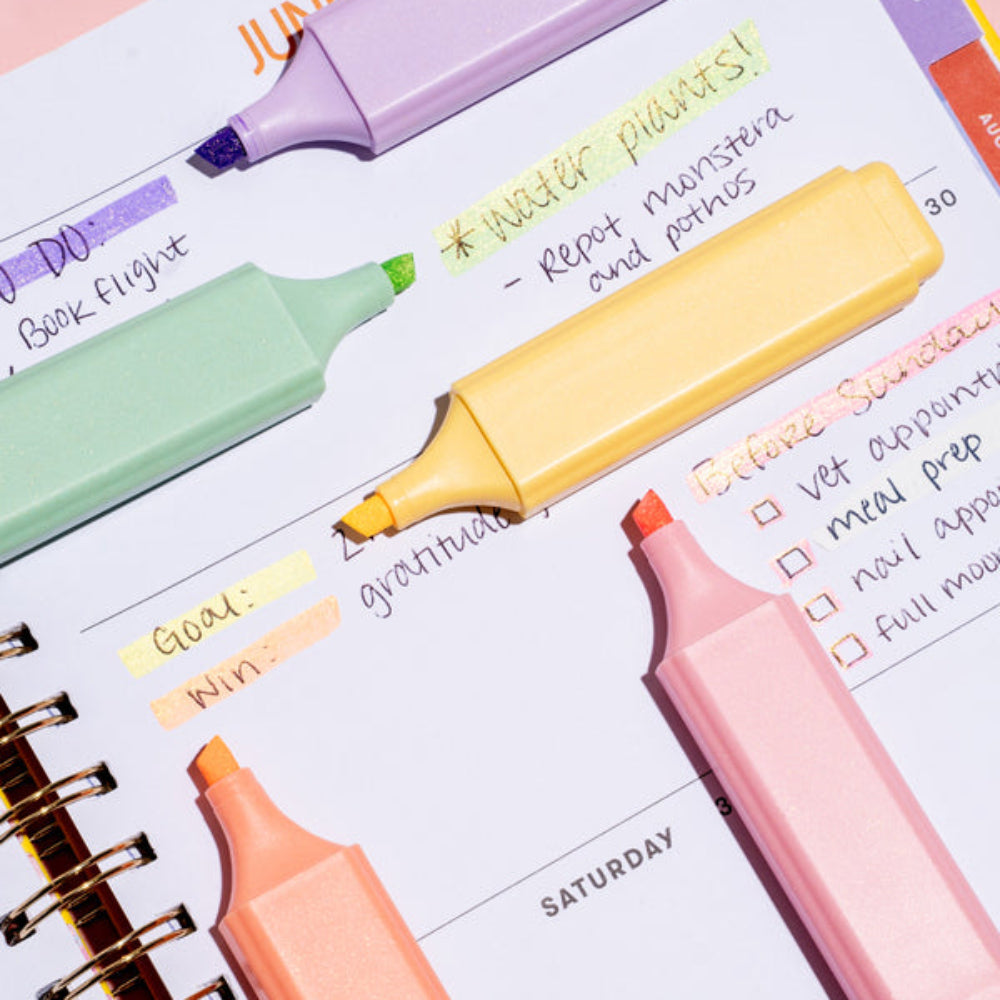 JUN
* Water plants!
- Repot monstera
and pothos
30
DO:
Book flight
Before Sunday
vet
meal prep
nail
full
gratitude
Goal:
Win:
3
SATURDAY
AUG